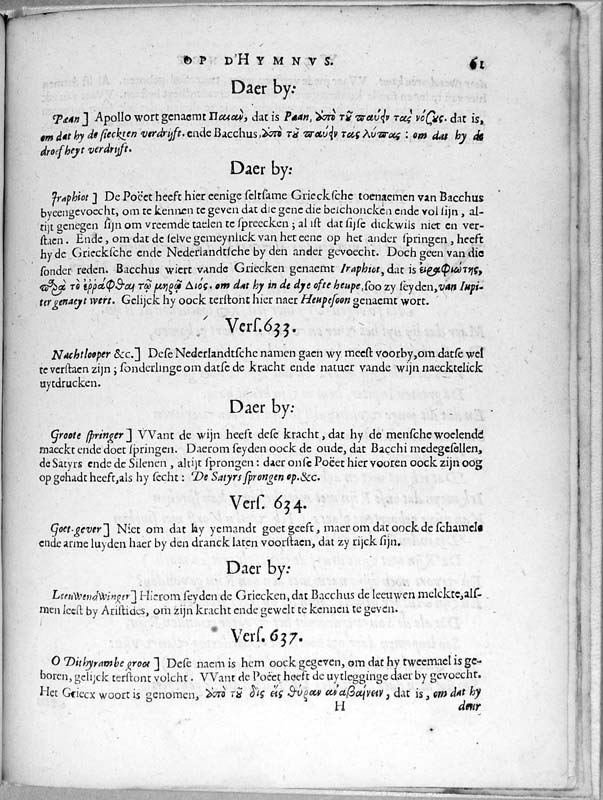 OP D'HYMNVS. 61
Daer by:
Pæan] Apollo wort genaemt Παιαν, dat is Pæan, ἀπὸ τοῦ παύειν τας νόσους. dat is,
om dat hy de sieckten verdrijft. ende Bacchus, ἀπὸ τοῦ παύειν τας λύπας : om dat hy de
droefheyt verdrijft.
Daer by:
Iraphiot] De Poëet heeft hier eenige seltsame Griecksche toenaemen van Bacchus
byeengevoecht, om te kennen te geven dat die gene die beschoncken ende vol sijn, al-
tijt genegen sijn om vreemde taelen te spreecken; al ist dat sijse dickwils niet en ver-
staen. Ende, om dat de selve gemeynlick van het eene op het ander springen, heeft
hy de Griecksche ende Nederlandtsche by den ander gevoecht. Doch geen van die
sonder reden. Bacchus wiert vande Griecken genaemt Iraphiot, dat is εἰραφιώτης,
παρὰ τὸ ἐρράφθαι τῷ μηρῷ Διός. om dat hy in de dye ofte heupe, soo zy seyden, van Iupi-
ter genaeyt wert. Gelijck hy oock terstont hier naer Heupesoon genaemt wort.
Vers. 633.
Nachtlooper &c.] Dese Nederlandtsche namen gaen wy meest voorby, om datse wel
te verstaen zijn; sonderlinge om datse de kracht ende natuer vande wijn naecktelick
uytdrucken.
Daer by:
Groote springer] VVant de wijn heeft dese kracht, dat hy de mensche woelende
maeckt ende doet springen. Daerom seyden oock de oude, dat Bacchi medegesellen,
de Satyrs ende de Silenen, altijt sprongen: daer onse Poëet hier vooren oock zijn oog
op gehadt heeft, als hy secht: De Satyrs sprongen op. &c.
Vers. 634.
Goet-gever] Niet om dat hy yemandt goet geeft, maer om dat oock de schamele
ende arme luyden haer by den dranck laten voorstaen, dat zy rijck sijn.
Daer by:
Leeuwendwinger] Hierom seyden de Griecken, dat Bacchus de leeuwen melckte, als-
men leest by Aristides, om zijn kracht ende gewelt te kennen te geven.
Vers. 637.
O Dithyrambe groot] Dese naem is hem oock gegeven, om dat hy tweemael is ge-
boren, gelijck terstont volcht. VVant de Poëet heeft de uytlegginge daer by gevoecht.
Het Griecx woort is genomen, ἀπὸ τοῦ δὶς εἰς θύραν ἀναβαίνειν, dat is, om dat hy
H deur